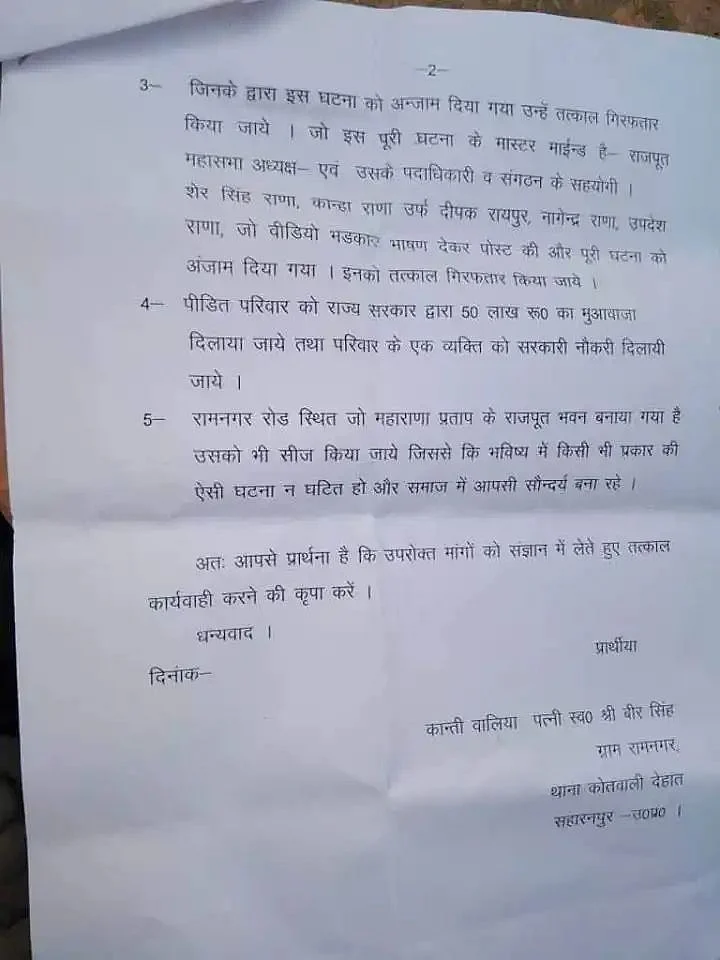 —2—
3— जिनके द्वारा इस घटना को अन्जाम दिया गया उन्हें तत्काल गिरफतार
किया जाये । जो इस पूरी घटना के मास्टर माईन्ड है— राजपूत
महासभा अध्यक्ष— एवं उसके पदाधिकारी व संगठन के सहयोगी ।
शेर सिंह राणा, कान्हा राणा उर्फ दीपक रायपुर, नागेन्द्र राणा, उपदेश
राणा, जो वीडियो भडकार भाषण देकर पोस्ट की और पूरी घटना को
अंजाम दिया गया । इनको तत्काल गिरफतार किया जाये ।
4— पीडित परिवार को राज्य सरकार द्वारा 50 लाख रू0 का मुआवाजा
दिलाया जाये तथा परिवार के एक व्यक्ति को सरकारी नौकरी दिलायी
जाये ।
5— रामनगर रोड स्थित जो महाराणा प्रताप के राजपूत भवन बनाया गया है
उसको भी सीज किया जाये जिससे कि भविष्य में किसी भी प्रकार की
ऐसी घटना न घटित हो और समाज में आपसी सौन्दर्य बना रहे ।
अतः आपसे प्रार्थना है कि उपरोक्त मांगों को संज्ञान में लेते हुए तत्काल
कार्यवाही करने की कृपा करें ।
धन्यवाद ।
प्रार्थीया
दिनांक—
कान्ती वालिया पत्नी स्व0 श्री बीर सिंह
ग्राम रामनगर,
थाना कोतवाली देहात
सहारनपुर —उ0प्र0 ।